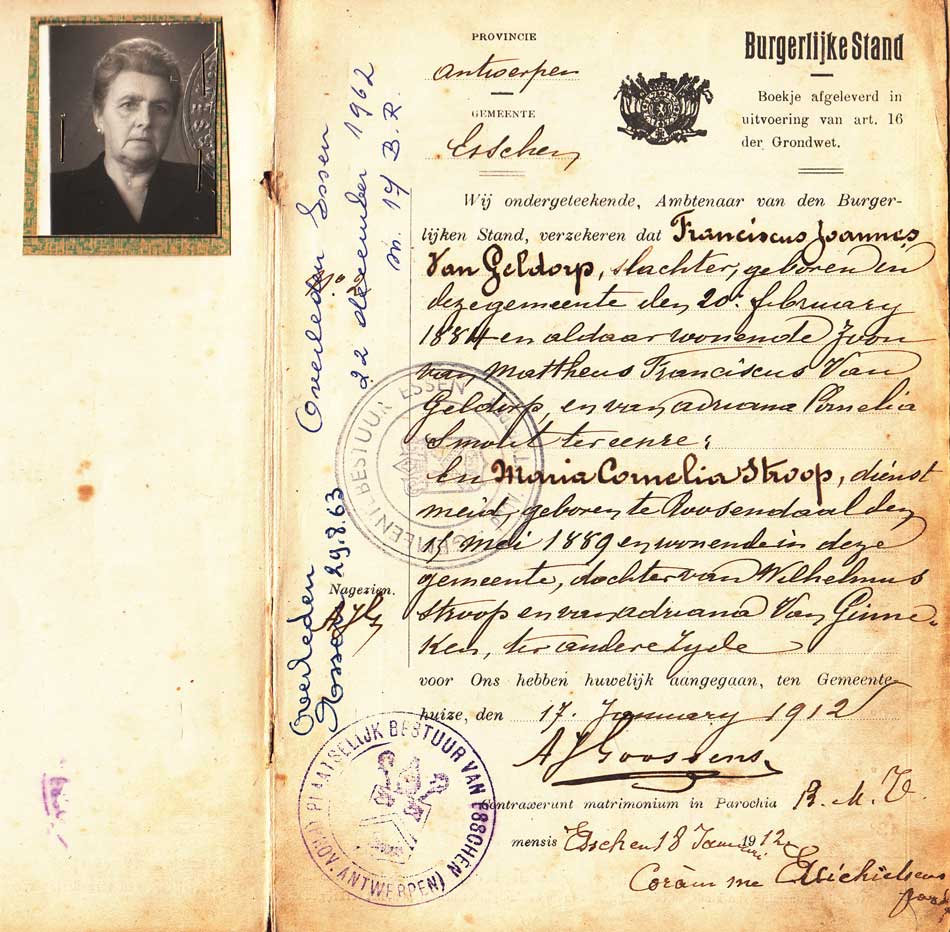 PROVINCIE
Antwerpen
GEMEENTE
Esschen
Burgerlijke Stand
Boekje afgeleverd in
uitvoering van art. 16
der Grondwet.
Wij ondergeteekende, Ambtenaar van den Burger-
lijken Stand, verzekeren dat Franciscus Joannes
Van Geldorp, slachter, geboren in
deze gemeente den 20n february
1884 en aldaar wonende Zoon
van Mattheus Franciscus Van
Geldorp, en van Adriana Cornelia
Smout ter eenre;
En Maria Cornelia Stroop, dienst
meid, geboren te Roosendaal den
Mei 1889 en wonende in deze
gemeente, dochter van Wilhelmus
Stroop en van Adriana Van Ginne-
ken, ter andere zyde
voor Ons hebben huwelijk aangegaan, ten Gemeente-
huize, den 17. January 1912
AJGoossens
Contraxerunt matrimonium in Parochia B. M. V.
mensis Esschen 18 Januari 1912
Coràm me
Nagezien.
Overleden Essen
22 december 1962
n. 17 B.R.
Overleden
Essen 29.8.63
GEMEENTEBESTUUR ESSEN
PLAATSELIJK BESTUUR VAN ESSCHEN
(PROV. ANTWERPEN)